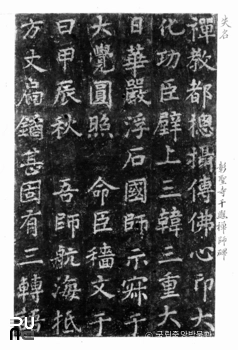 失名
彰聖寺千熙禪師碑
禪敎都總攝傳佛心印大
化功臣壁上三韓三重大
日華嚴浮石國師示㝛于
大覺圓照 命臣穡文于
曰甲辰秋 吾師航海抵
方丈扃鐍甚固有三轉
© 국립중앙박물관